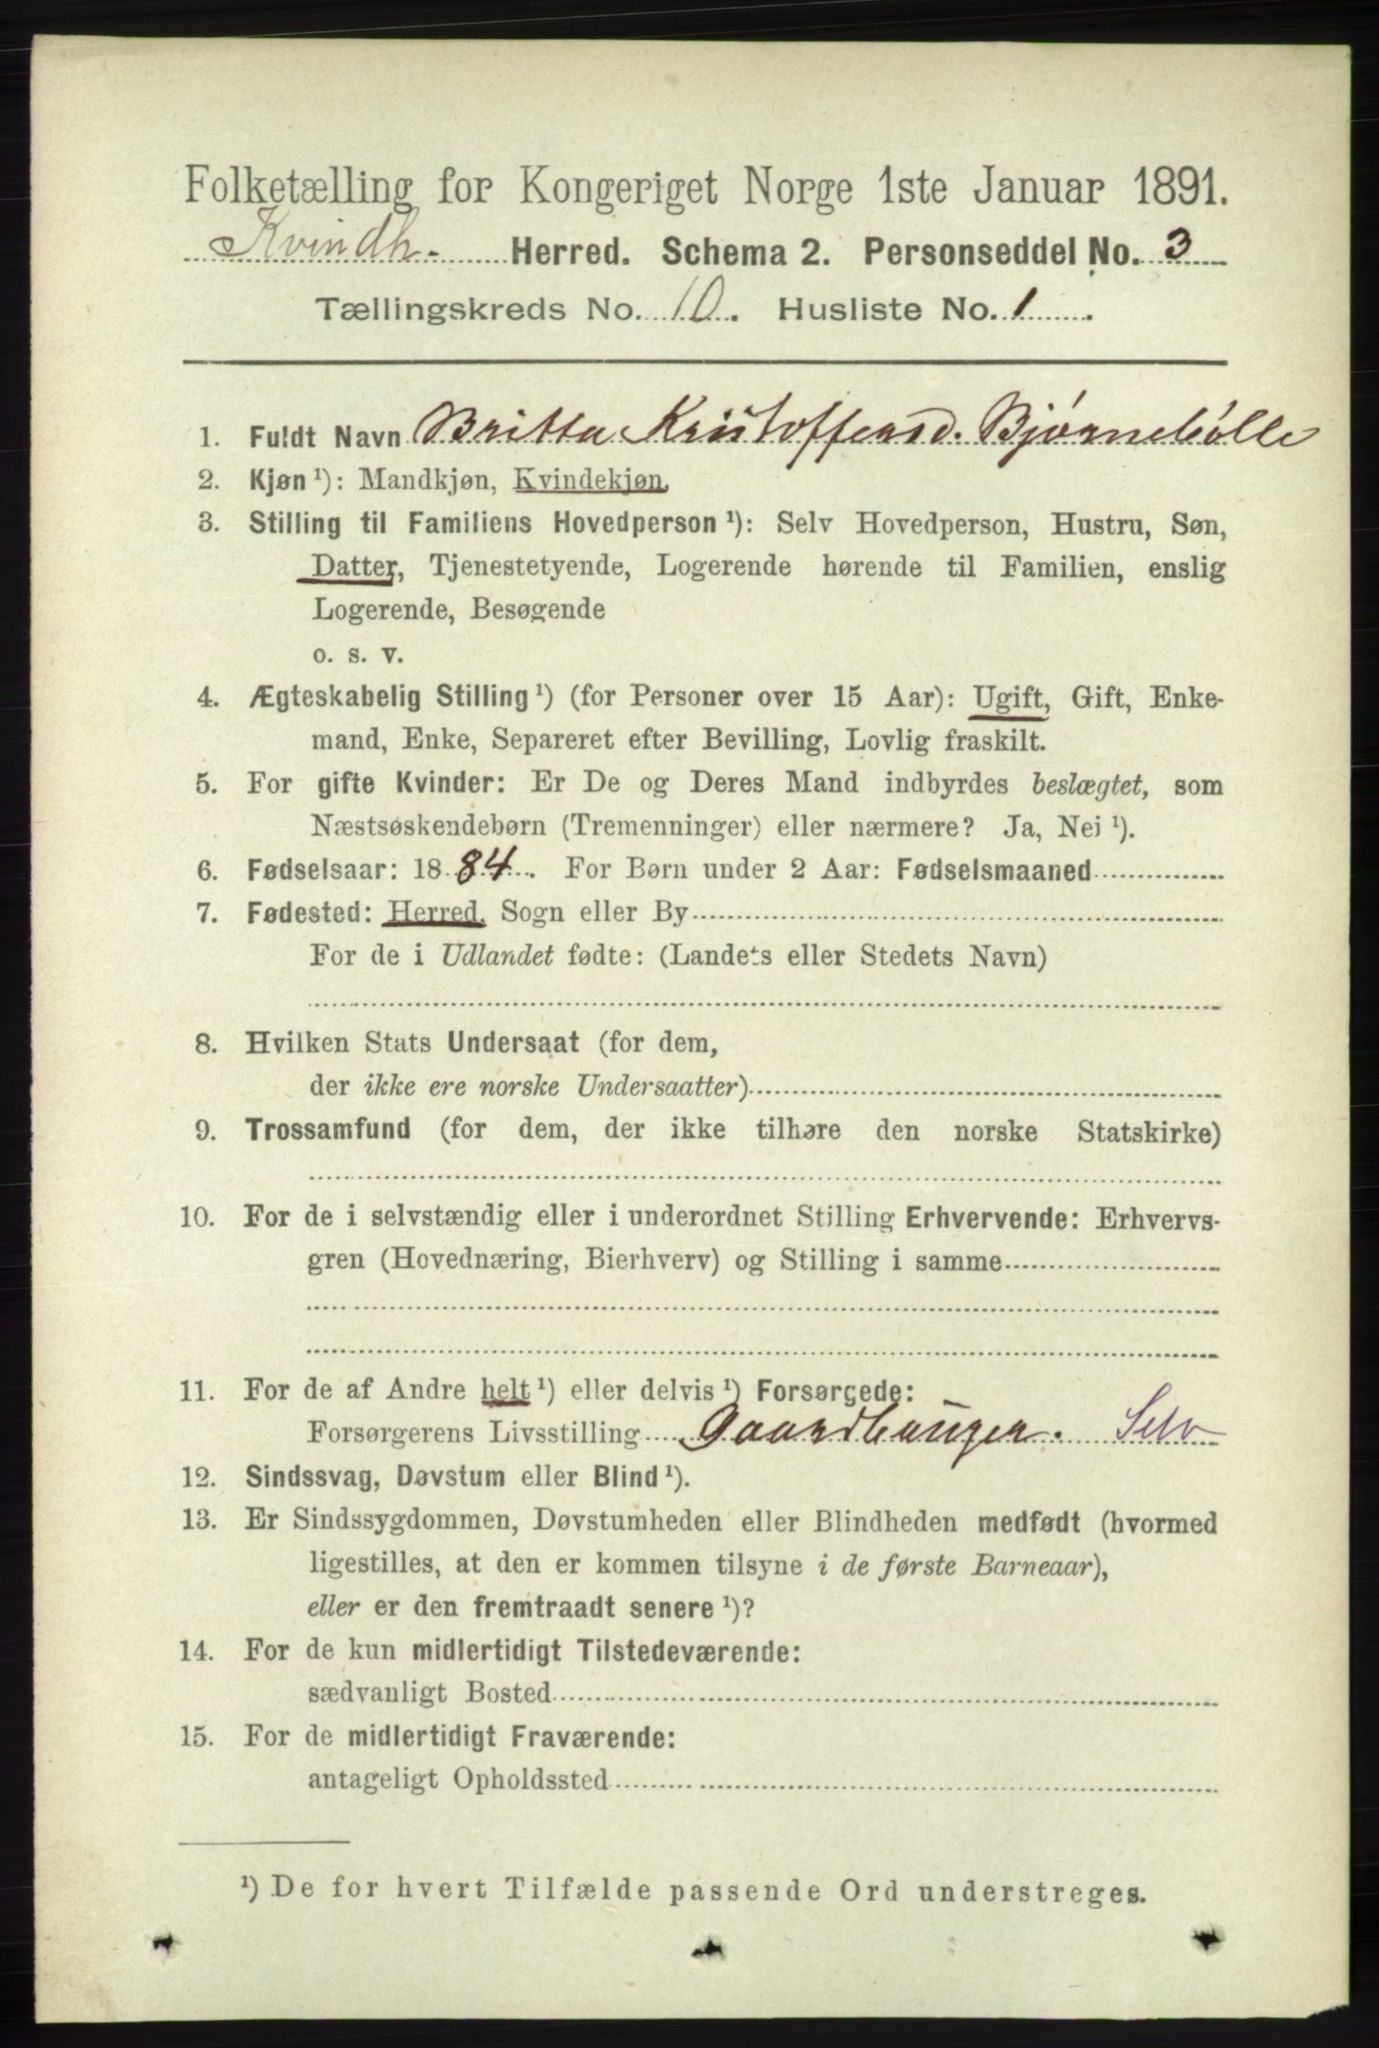 Folketælling for Kongeriget Norge 1ste Januar 1891.
Kvindh. Herred. Schema 2. Personseddel No. 3
Tællingskreds No. 10. Husliste No. 1.
1. Fuldt Navn Britta Kristoffersd. Bjørnebôlle
2. Kjøn ¹): Mandkjøn, Kvindekjøn.
3. Stilling til Familiens Hovedperson ¹): Selv Hovedperson, Hustru, Søn,
Datter, Tjenestetyende, Logerende hørende til Familien, enslig
Logerende, Besøgende
o. s. v.
4. Ægteskabelig Stilling ¹) (for Personer over 15 Aar): Ugift, Gift, Enke-
mand, Enke, Separeret efter Bevilling, Lovlig fraskilt.
5. For gifte Kvinder: Er De og Deres Mand indbyrdes beslægtet, som
Næstsøskendebørn (Tremenninger) eller nærmere? Ja, Nei ¹).
6. Fødselsaar: 1884. For Børn under 2 Aar: Fødselsmaaned
7. Fødested: Herred, Sogn eller By
For de i Udlandet fødte: (Landets eller Stedets Navn)
8. Hvilken Stats Undersaat (for dem,
der ikke ere norske Undersaatter)
9. Trossamfund (for dem, der ikke tilhøre den norske Statskirke)
10. For de i selvstændig eller i underordnet Stilling Erhvervende: Erhvervs-
gren (Hovednæring, Bierhverv) og Stilling i samme
11. For de af Andre helt ¹) eller delvis ¹) Forsørgede:
Forsørgerens Livsstilling Gaardbruger. Selv
12. Sindssvag, Døvstum eller Blind ¹).
13. Er Sindssygdommen, Døvstumheden eller Blindheden medfødt (hvormed
ligestilles, at den er kommen tilsyne i de første Barneaar),
eller er den fremtraadt senere ¹)?
14. For de kun midlertidigt Tilstedeværende:
sædvanligt Bosted
15. For de midlertidigt Fraværende:
antageligt Opholdssted
¹) De for hvert Tilfælde passende Ord understreges.